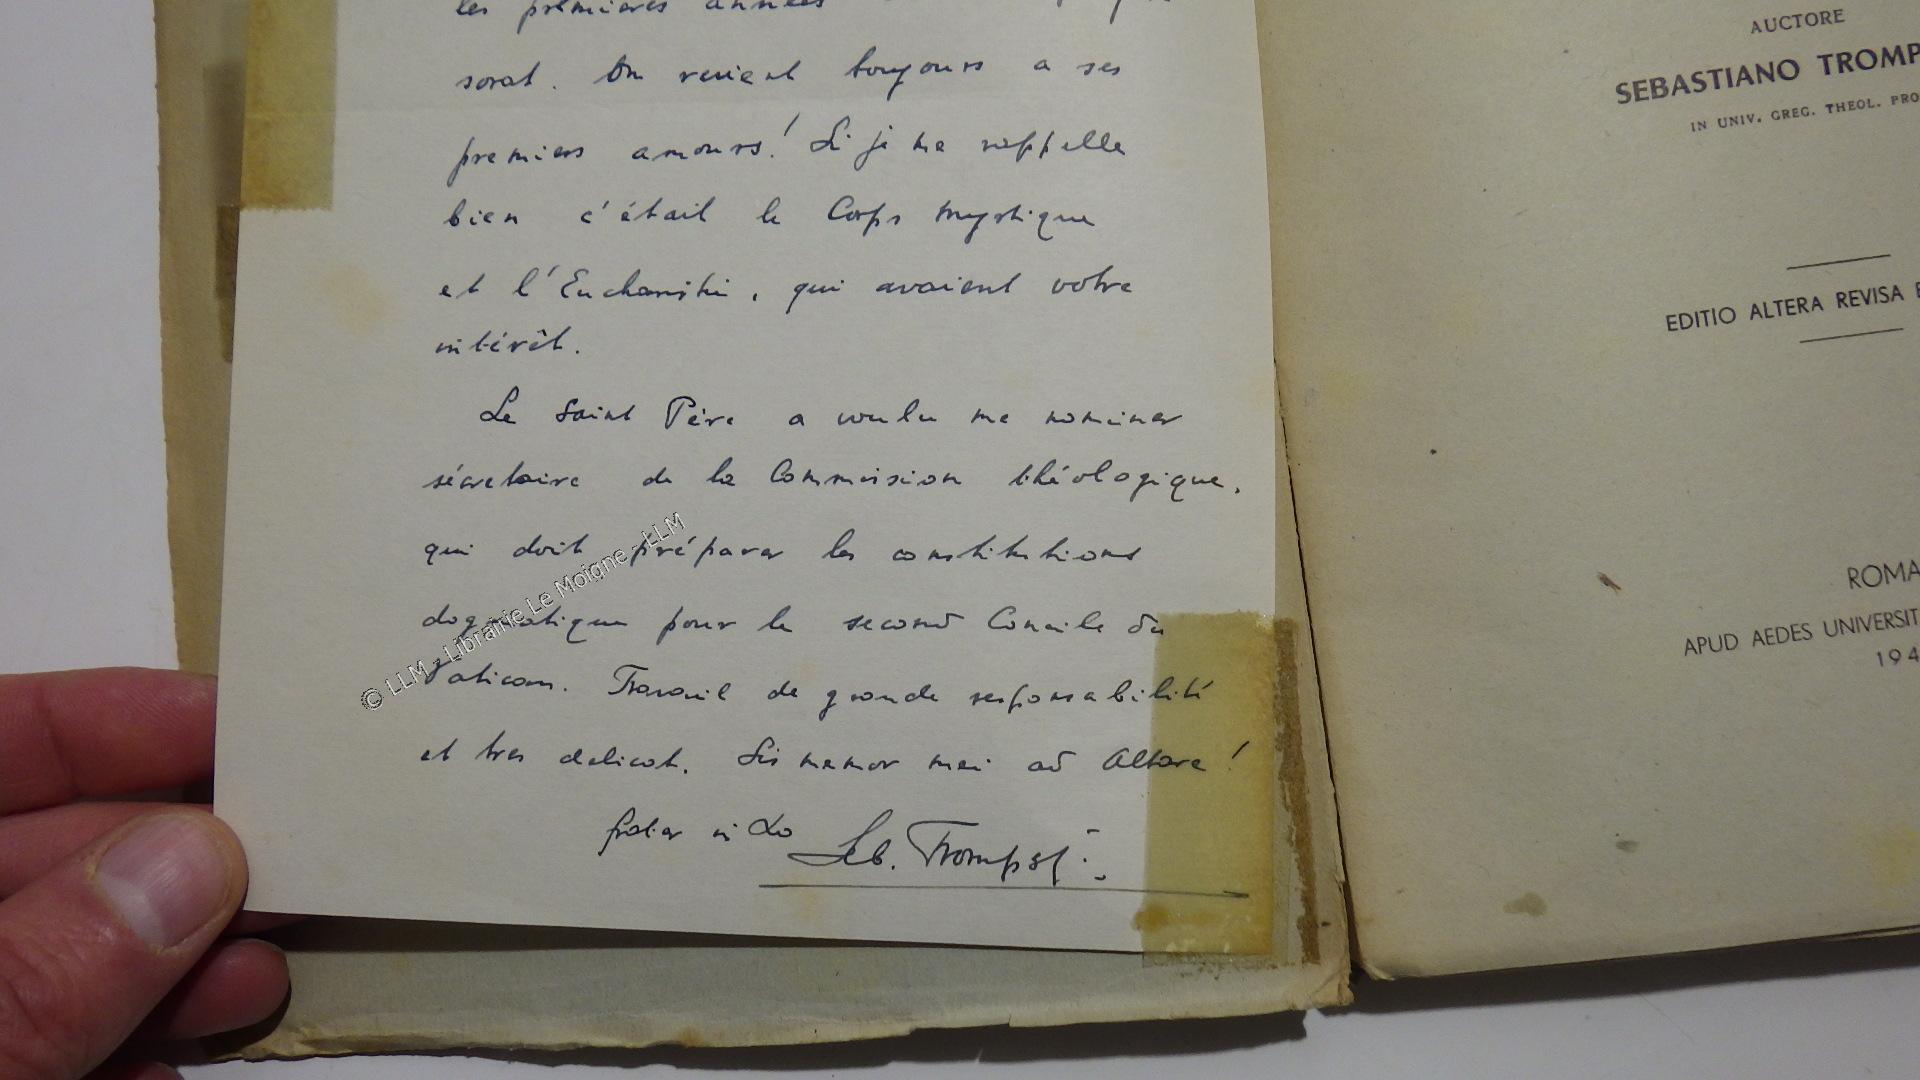 les premières années
sorat. On revient toujours a ses
premiers amours! Si je me rappelle
bien c'était le Corps mystique
et l'Eucharistie, qui avaient votre
intérêt.
Le Saint Père a voulu me nominer
sécretaire de la Commission théologique,
qui doit préparer les constitutions
dogmatiques pour le second Concile du
Vatican. Travail de grande responsabilité
et tres delicat. Sis memor mei ad Altare!
frater in Do Seb. Tromp sj.
© LLM - Librairie Le Moigne - LLM
AUCTORE
SEBASTIANO TROMP
IN UNIV. GREG. THEOL. PRO
EDITIO ALTERA REVISA E
ROMA
APUD AEDES UNIVERSIT
194